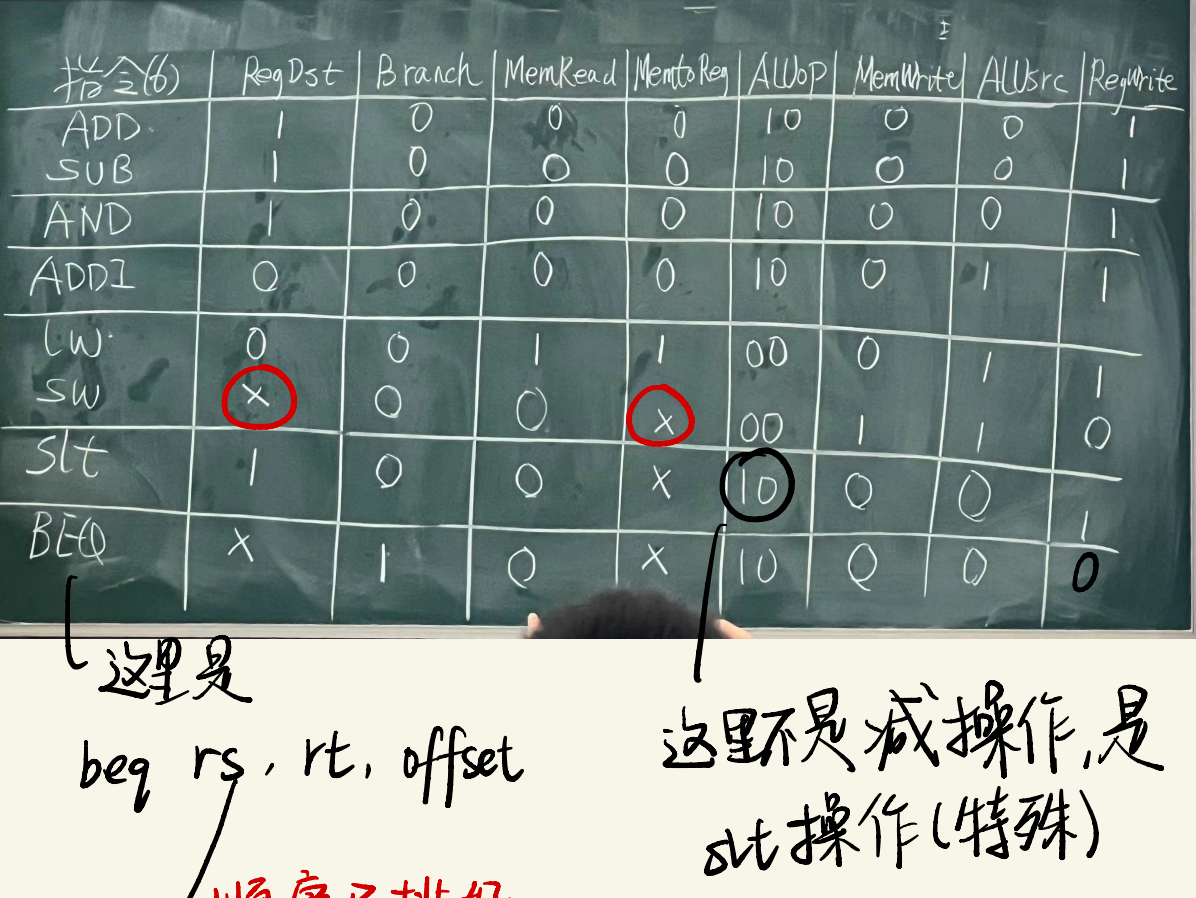 指令(6) RegDst Branch MemRead MemtoReg ALUOP MemWrite ALUsrc RegWrite
ADD 1 0 0 0 10 0 0 1
SUB 1 0 0 0 10 0 0 1
AND 1 0 0 0 10 0 0 1
ADDI 0 0 0 0 10 0 1 1
LW 0 0 1 1 00 0 1 1
SW x 0 0 x 00 1 1 0
Slt 1 0 0 x 10 0 0 1
BEQ x 1 0 x 10 0 0 0
这里是
beq rs, rt, offset
这里不是减操作,是
slt操作(特殊)